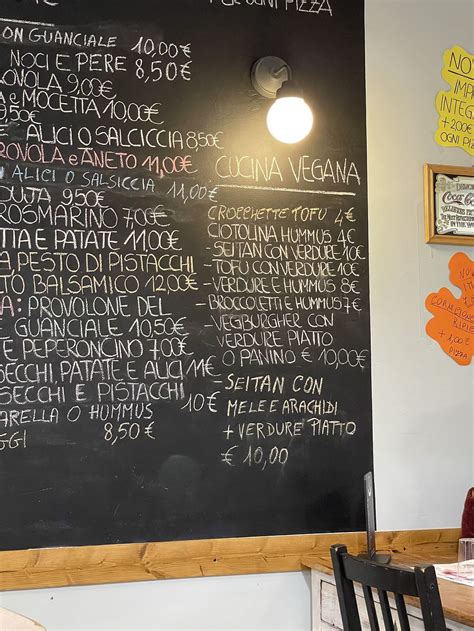 OGNI PIZZA
ON GUANCIALE 10,00€
NOCI E PERE 8,50€
OVOLA 9,00€
A e MOCETTA 10,00€
E ALICI O SALCICCIA 8,50€
ROVOLA e ANETO 11,00€
N ALICI O SALSICCIA 11,00€
DUJA 9,50€
ROSMARINO 7,00€
TTA E PATATE 11,00€
A, PESTO DI PISTACCHI
TO BALSAMICO 12,00€
A: PROVOLONE DEL
GUANCIALE 10,50€
E PEPERONCINO 7,00€
SECCHI, PATATE E ALICI 11€
SECCHI E PISTACCHI 10€
ARELLA O HUMMUS
GGI 8,50€
CUCINA VEGANA
CROCCHETTE TOFU 4€
CIOTOLINA HUMMUS 4€
-SEITAN CON VERDURE 10€
-TOFU CON VERDURE 10€
-VERDURE E HUMMUS 8€
-BROCCOLETTI E HUMMUS 7€
-VEGBURGHER CON
VERDURE PIATTO
O PANINO € 10,00€
-SEITAN CON
MELE E ARACHIDI
+ VERDURE PIATTO
€ 10,00
NO
IMP
INTEG
+2,00€
OGNI PI
Coca-C
+1,00€
PIZZA